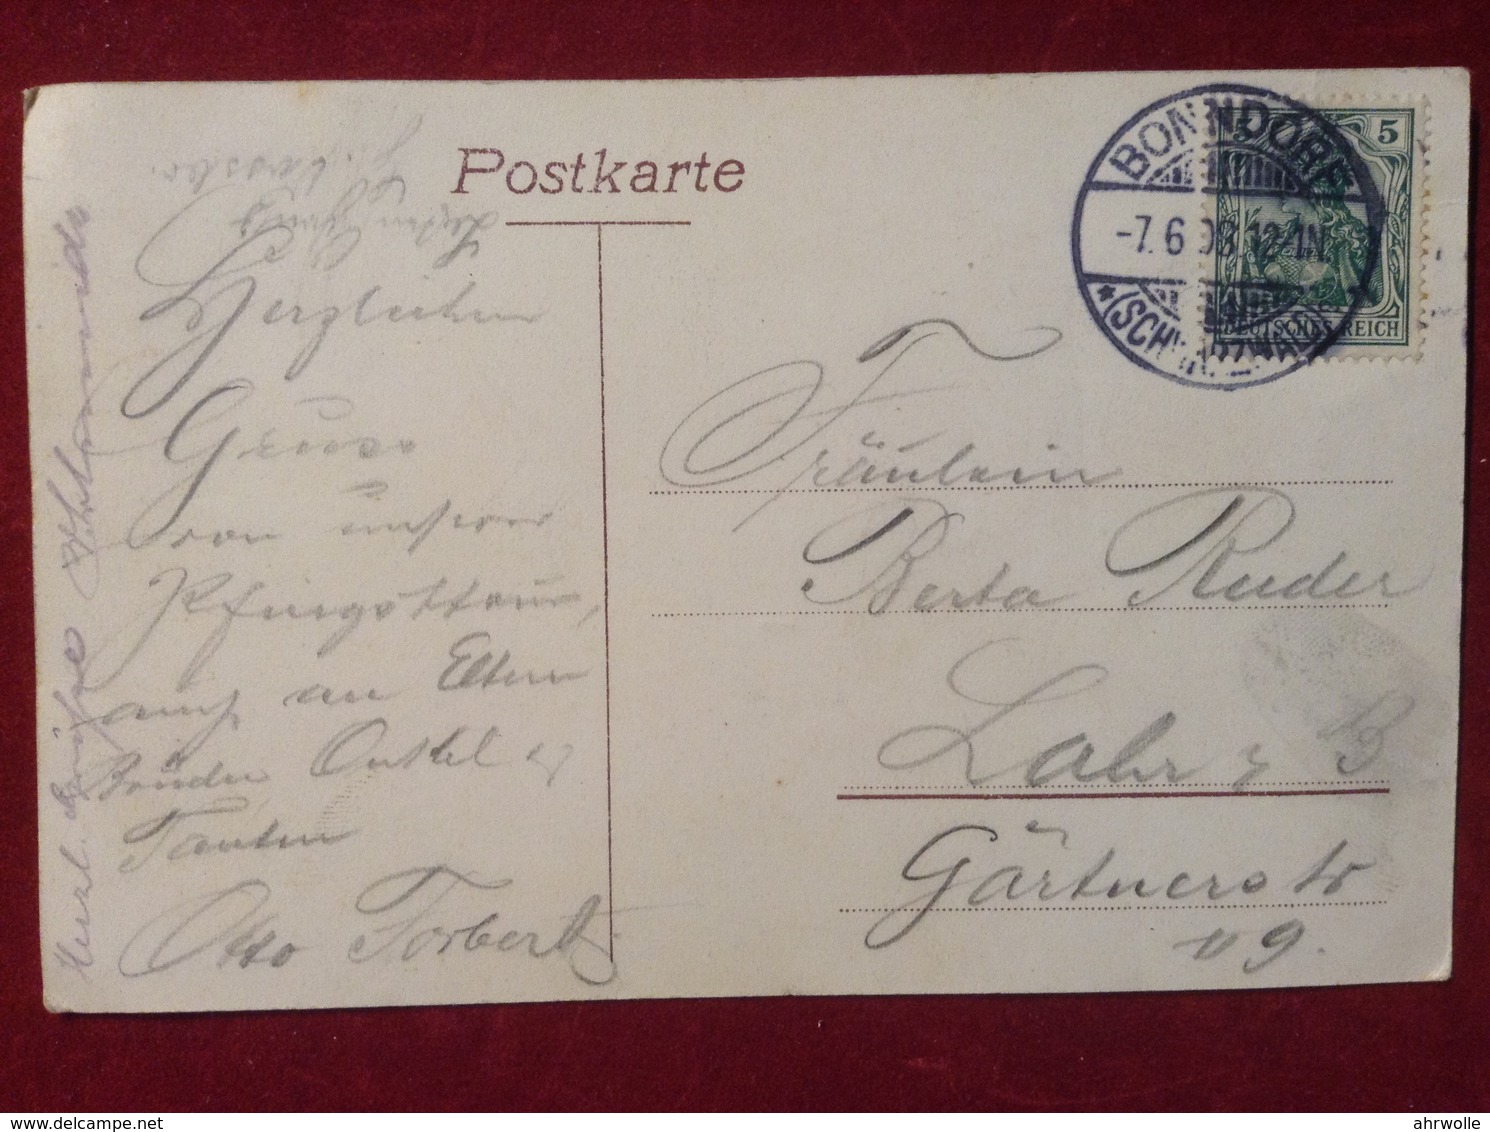 Postkarte
BONNDORF
-7.6.08.12-1N.
*(SCHWARZWALD)*
5 5
DEUTSCHES REICH
Herzlichen
Gruss
von unserer
Pfingsttour,
auch an Eltern
Bruder Onkel u
Tanten
Otto Torbert
Herzl. Grüße
Fräulein
Berta Ruder
Lahr i B
Gärtnerstr
19.
http://www.delcampe.net
ahrwolle